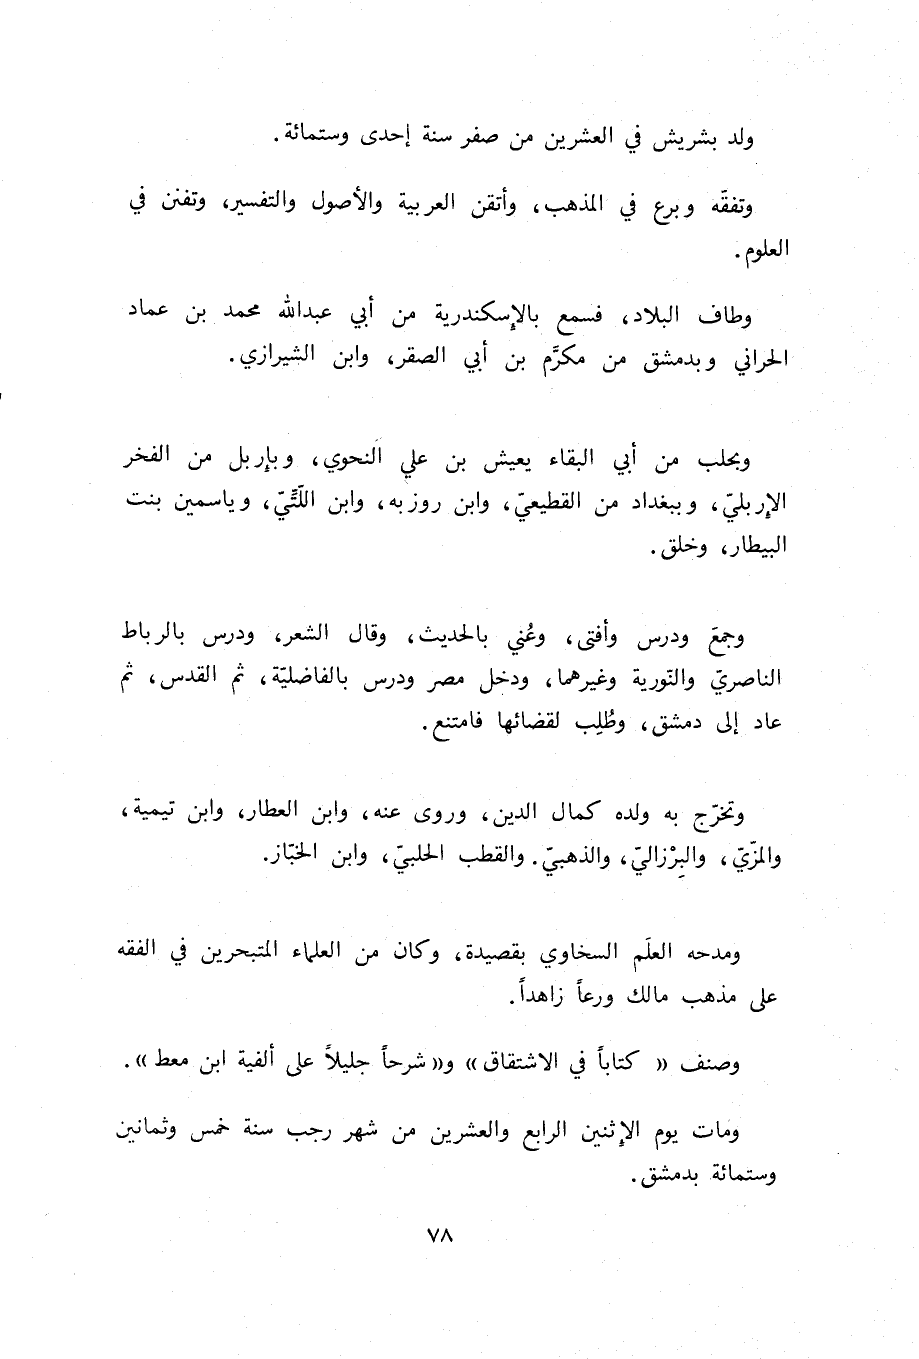 ولد بشريش في العشرين من صفر سنة إحدى وستمائة.
وتفقّه وبرع في المذهب، وأتقن العربية والأصول والتفسير، وتفنن في
العلوم.
وطاف البلاد، فسمع بالإسكندرية من أبي عبدالله محمد بن عماد
الحراني وبدمشق من مكرَّم بن أبي الصقر، وابن الشيرازي.
وبحلب من أبي البقاء يعيش بن علي النحوي، وبإربل من الفخر
الإربليّ، وببغداد من القطيعيّ، وابن روزبه، وابن اللّتّيّ، وياسمين بنت
البيطار، وخلق.
وجمعَ ودرس وأفتى، وعُني بالحديث، وقال الشعر، ودرس بالرباط
الناصريّ والنّورية وغيرهما، ودخل مصر ودرس بالفاضليّة، ثم القدس، ثم
عاد إلى دمشق، وطُلِب لقضائها فامتنع.
وتخرّج به ولده كمال الدين، وروى عنه، وابن العطار، وابن تيمية،
والمزّيّ، والبِرْزاليّ، والذهبيّ. والقطب الحلبيّ، وابن الخبّاز.
ومدحه العلَم السخاوي بقصيدة، وكان من العلماء المتبحرين في الفقه
على مذهب مالك ورعاً زاهداً.
وصنف « كتاباً في الاشتقاق» و«شرحاً جليلاً على ألفية ابن معط».
ومات يوم الإثنين الرابع والعشرين من شهر رجب سنة خمس وثمانين
وستمائة بدمشق.
٧٨